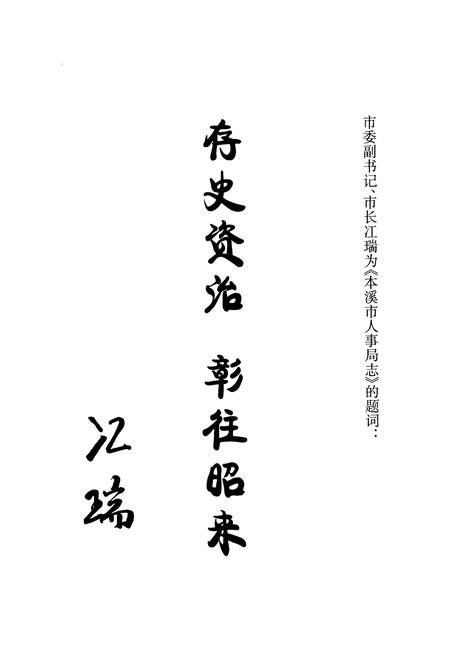 市委副书记、市长冮瑞为《本溪市人事局志》的题词：
存史资治 彰往昭来
冮瑞